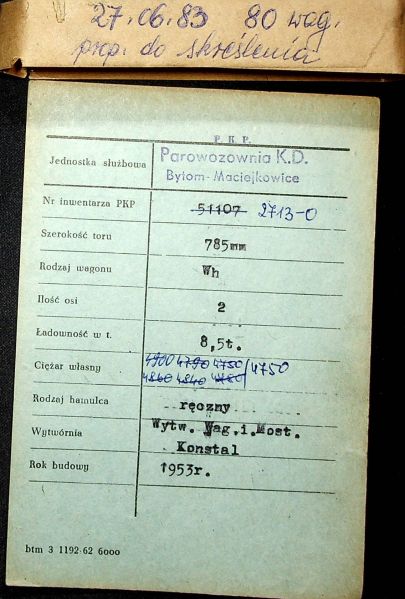 27.06.83 80 wag.
prop. do skreślenia
P.K.P.
Jednostka służbowa Parowozownia K.D.
Bytom-Maciejkowice
Nr inwentarza PKP 51107 2713-0
Szerokość toru 785mm
Rodzaj wagonu Wh
Ilość osi 2
Ładowność w t. 8,5t.
Ciężar własny 4900 4790 4750 / 4750
4860 4840 4780
Rodzaj hamulca ręczny
Wytwórnia Wytw. Wag.i.Most.
Konstal
Rok budowy 1953r.
btm 3 1192 62 6000